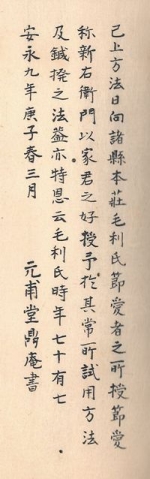 已上方法日向諸縣本莊毛利氏節愛者之所授節愛
称新右衛門以家君之好授予於其常所試用方法
及鍼撥之法盡亦特恩云毛利氏時年七十有七
安永九年庚子春三月
元甫堂鼎庵書